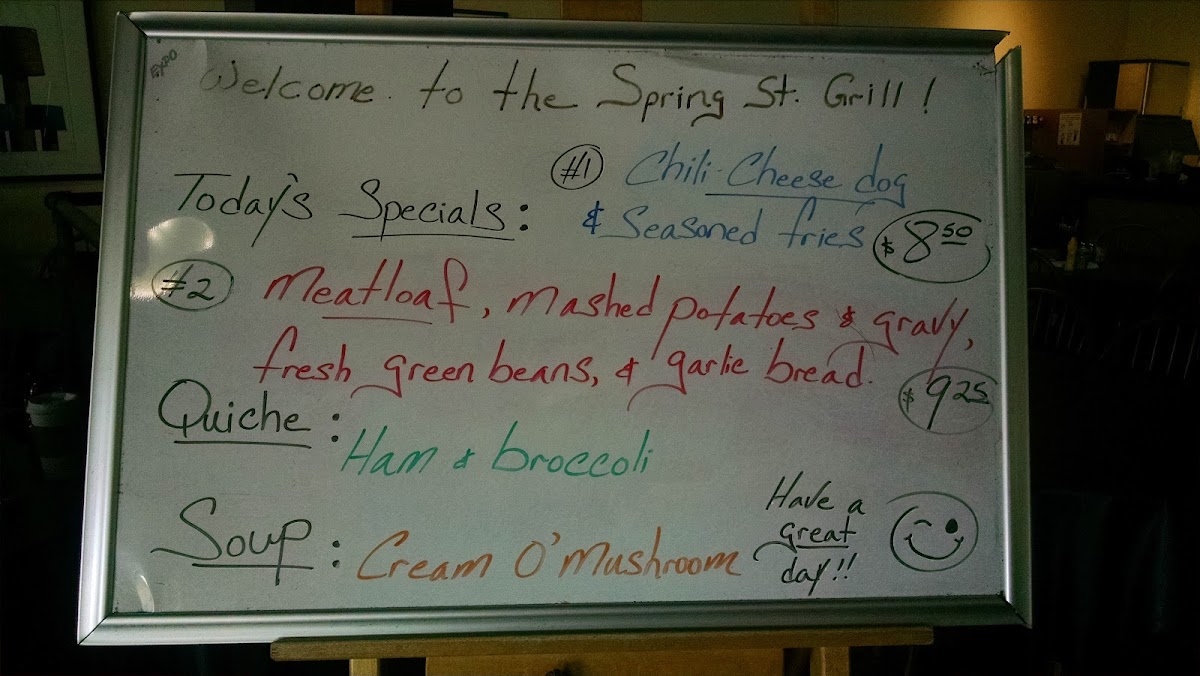 EXPO
Welcome to the Spring St. Grill!
Today's Specials: #1 Chili Cheese dog
& Seasoned fries $8 50
#2 Meatloaf, mashed potatoes & gravy,
fresh green beans, & garlic bread. $9 25
Quiche:
Ham & broccoli
Soup: Cream O'Mushroom
Have a
great
day!!